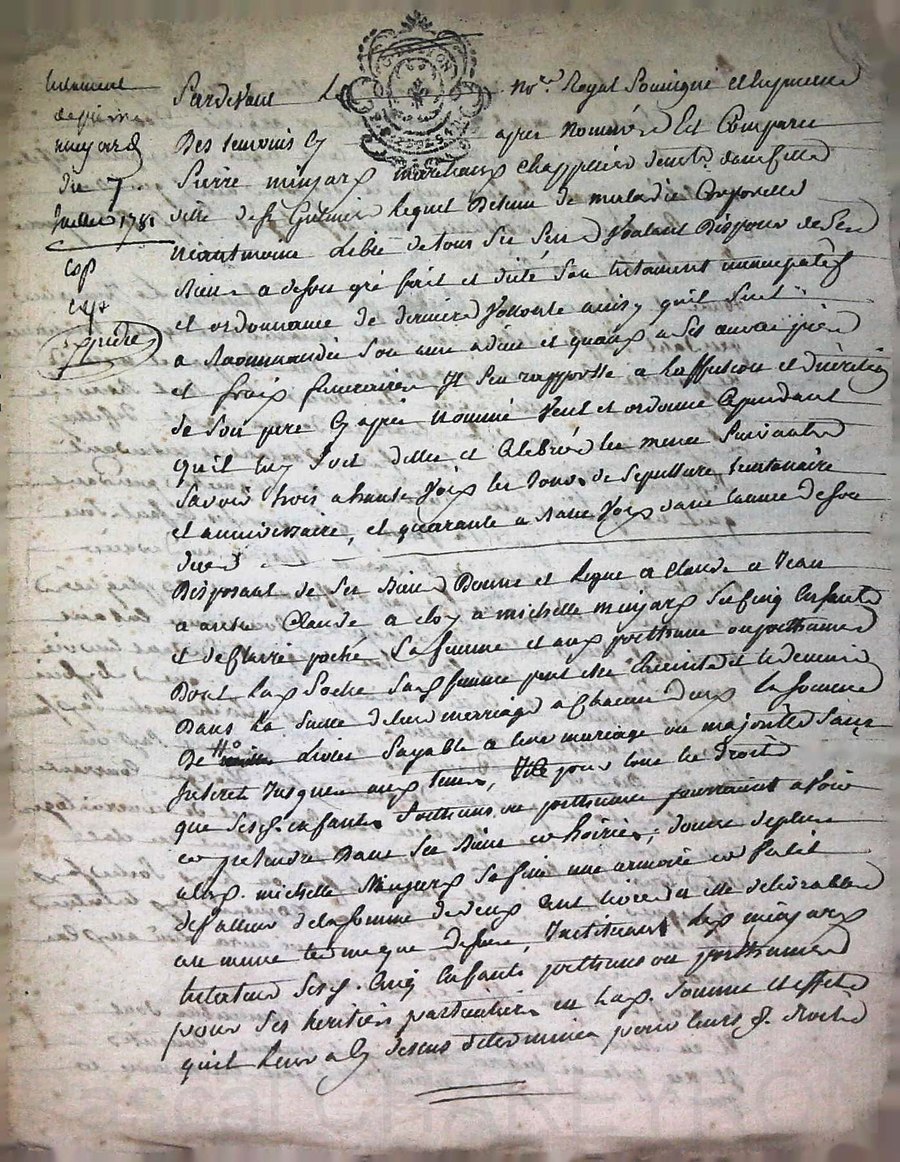 testament
de pierre
minjard
du 7
juillet 1781
cop
exp
Expediée
Pardevant le nore. Royal Soussigné et En presence
Des temoins Cy apres nommés Est Comparu
Pierre minjard marchand Chappellier demt. dans cette
ville de st. Lequel Detenu de maladie Corporelle
neantmoins Libre de tous Ses Sens Voulant Disposer de Ses
Biens a de son gré fait et dicté Son testament
et ordonnance de derniere Vollonté ainsy quil Suit
a Recommandé Son ame a dieu et quand a Ses
et fraix funeraires Il Sen rapportte a Laffection et
de Son pere Cy apres nommé Veut et ordonne Cependant
quil luy Soit dittes et Celebrées les messes Suivantes
Savoir trois a haute Voix les Jours de Sepulture
et anniversaire, et quarante a Basse Voix dans Lannée de Son
deces
Disposant de Ses Biens Donne et legue a Claude a Jean
a autre Claude a a michelle minjard Ses Cinq Enfants
et de Sa femme et aux posthume ou posthumes
Dont Lad. Sad. femme peut etre Enceinte et
Dans La Suitte de leur merriage a Chacun deux La Somme
De livres Payable a leur mariage ou majorité Sans
Interet Jusques aux termes, pour tous les Droits
que Sesd. enfants posthume ou posthumes pourraient avoir
et pretendre Dans Ses Biens et hoiries, donne de plus
a lad. michelle Minjard Sa fille une armoire
de Valleur de la Somme de deux Cent livres a elle délivrable
au meme terme que dessus, Instituant Led. minjard
testateur Sesd. Cinq Enfants posthume ou posthumes
pour Ses heritiers particuliers en lad. Somme et effets
quil leur a Cy dessus determinés pour leurs d. droits